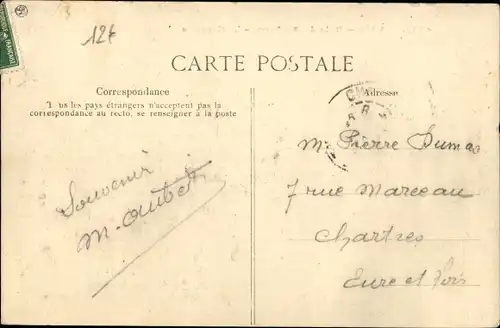 12f
CARTE POSTALE
Correspondance
Tous les pays étrangers n'acceptent pas la
correspondance au recto, se renseigner à la poste
Souvenir
M. Aubert
Adresse
Mr Pierre Dumas
7 rue Marceau
Chartres
Eure et Loir